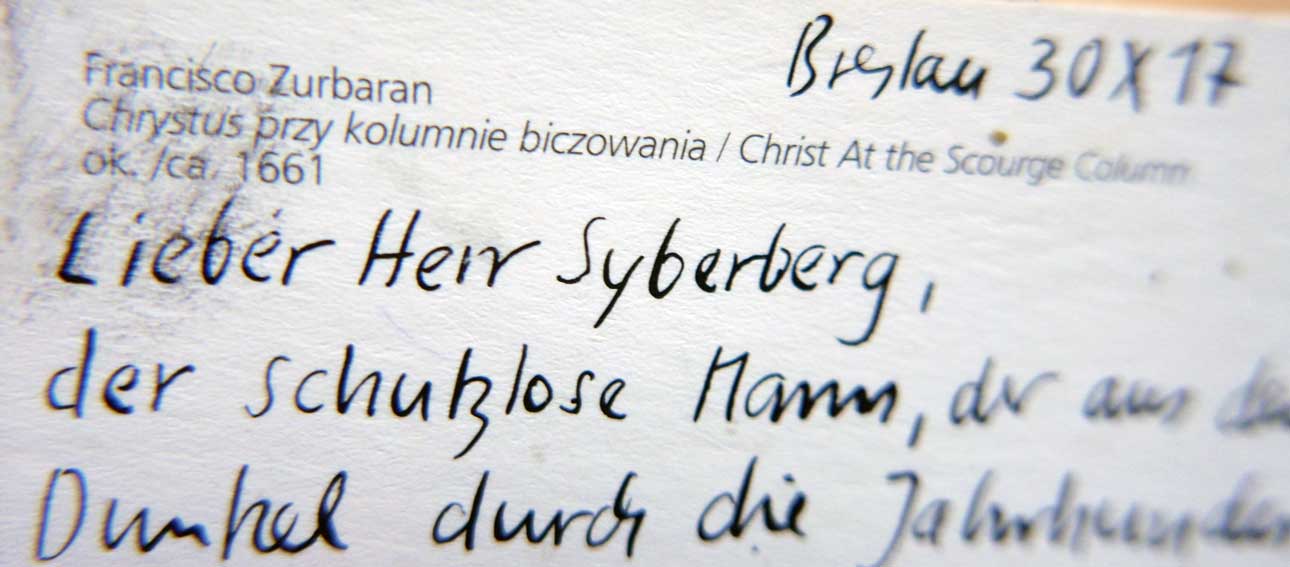 Breslau 30 X 17
Francisco Zurbaran
Chrystus przy kolumnie biczowania / Christ At the Scourge Column
ok. /ca. 1661
Lieber Herr Syberberg,
der schutzlose Mann, der aus
Dunkel durch die